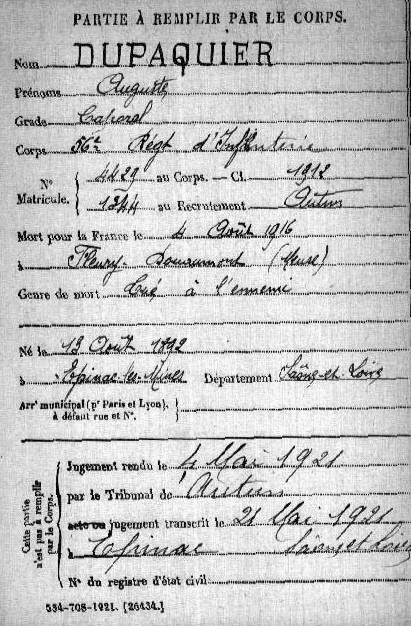 PARTIE À REMPLIR PAR LE CORPS.
Nom DUPAQUIER
Prénoms Auguste
Grade Caporal
Corps 56e Régt d'Infanterie
N° Matricule. { 4429 au Corps. — Cl. 1912
1344 au Recrutement Autun
Mort pour la France le 4 Août 1916
à Fleury-Douaumont (Meuse)
Genre de mort Tué à l'ennemi
Né le 13 Août 1892
à Epinac-les-Mines Département Saône-et-Loire
Arrt municipal (pr Paris et Lyon), à défaut rue et N°.
Cette partie n'est pas à remplir par le Corps.
Jugement rendu le 4 Mai 1921
par le Tribunal de Autun
acte ou jugement transcrit le 21 Mai 1921
à Epinac Saône et Loire
N° du registre d'état civil
534-708-1921. [26434.]